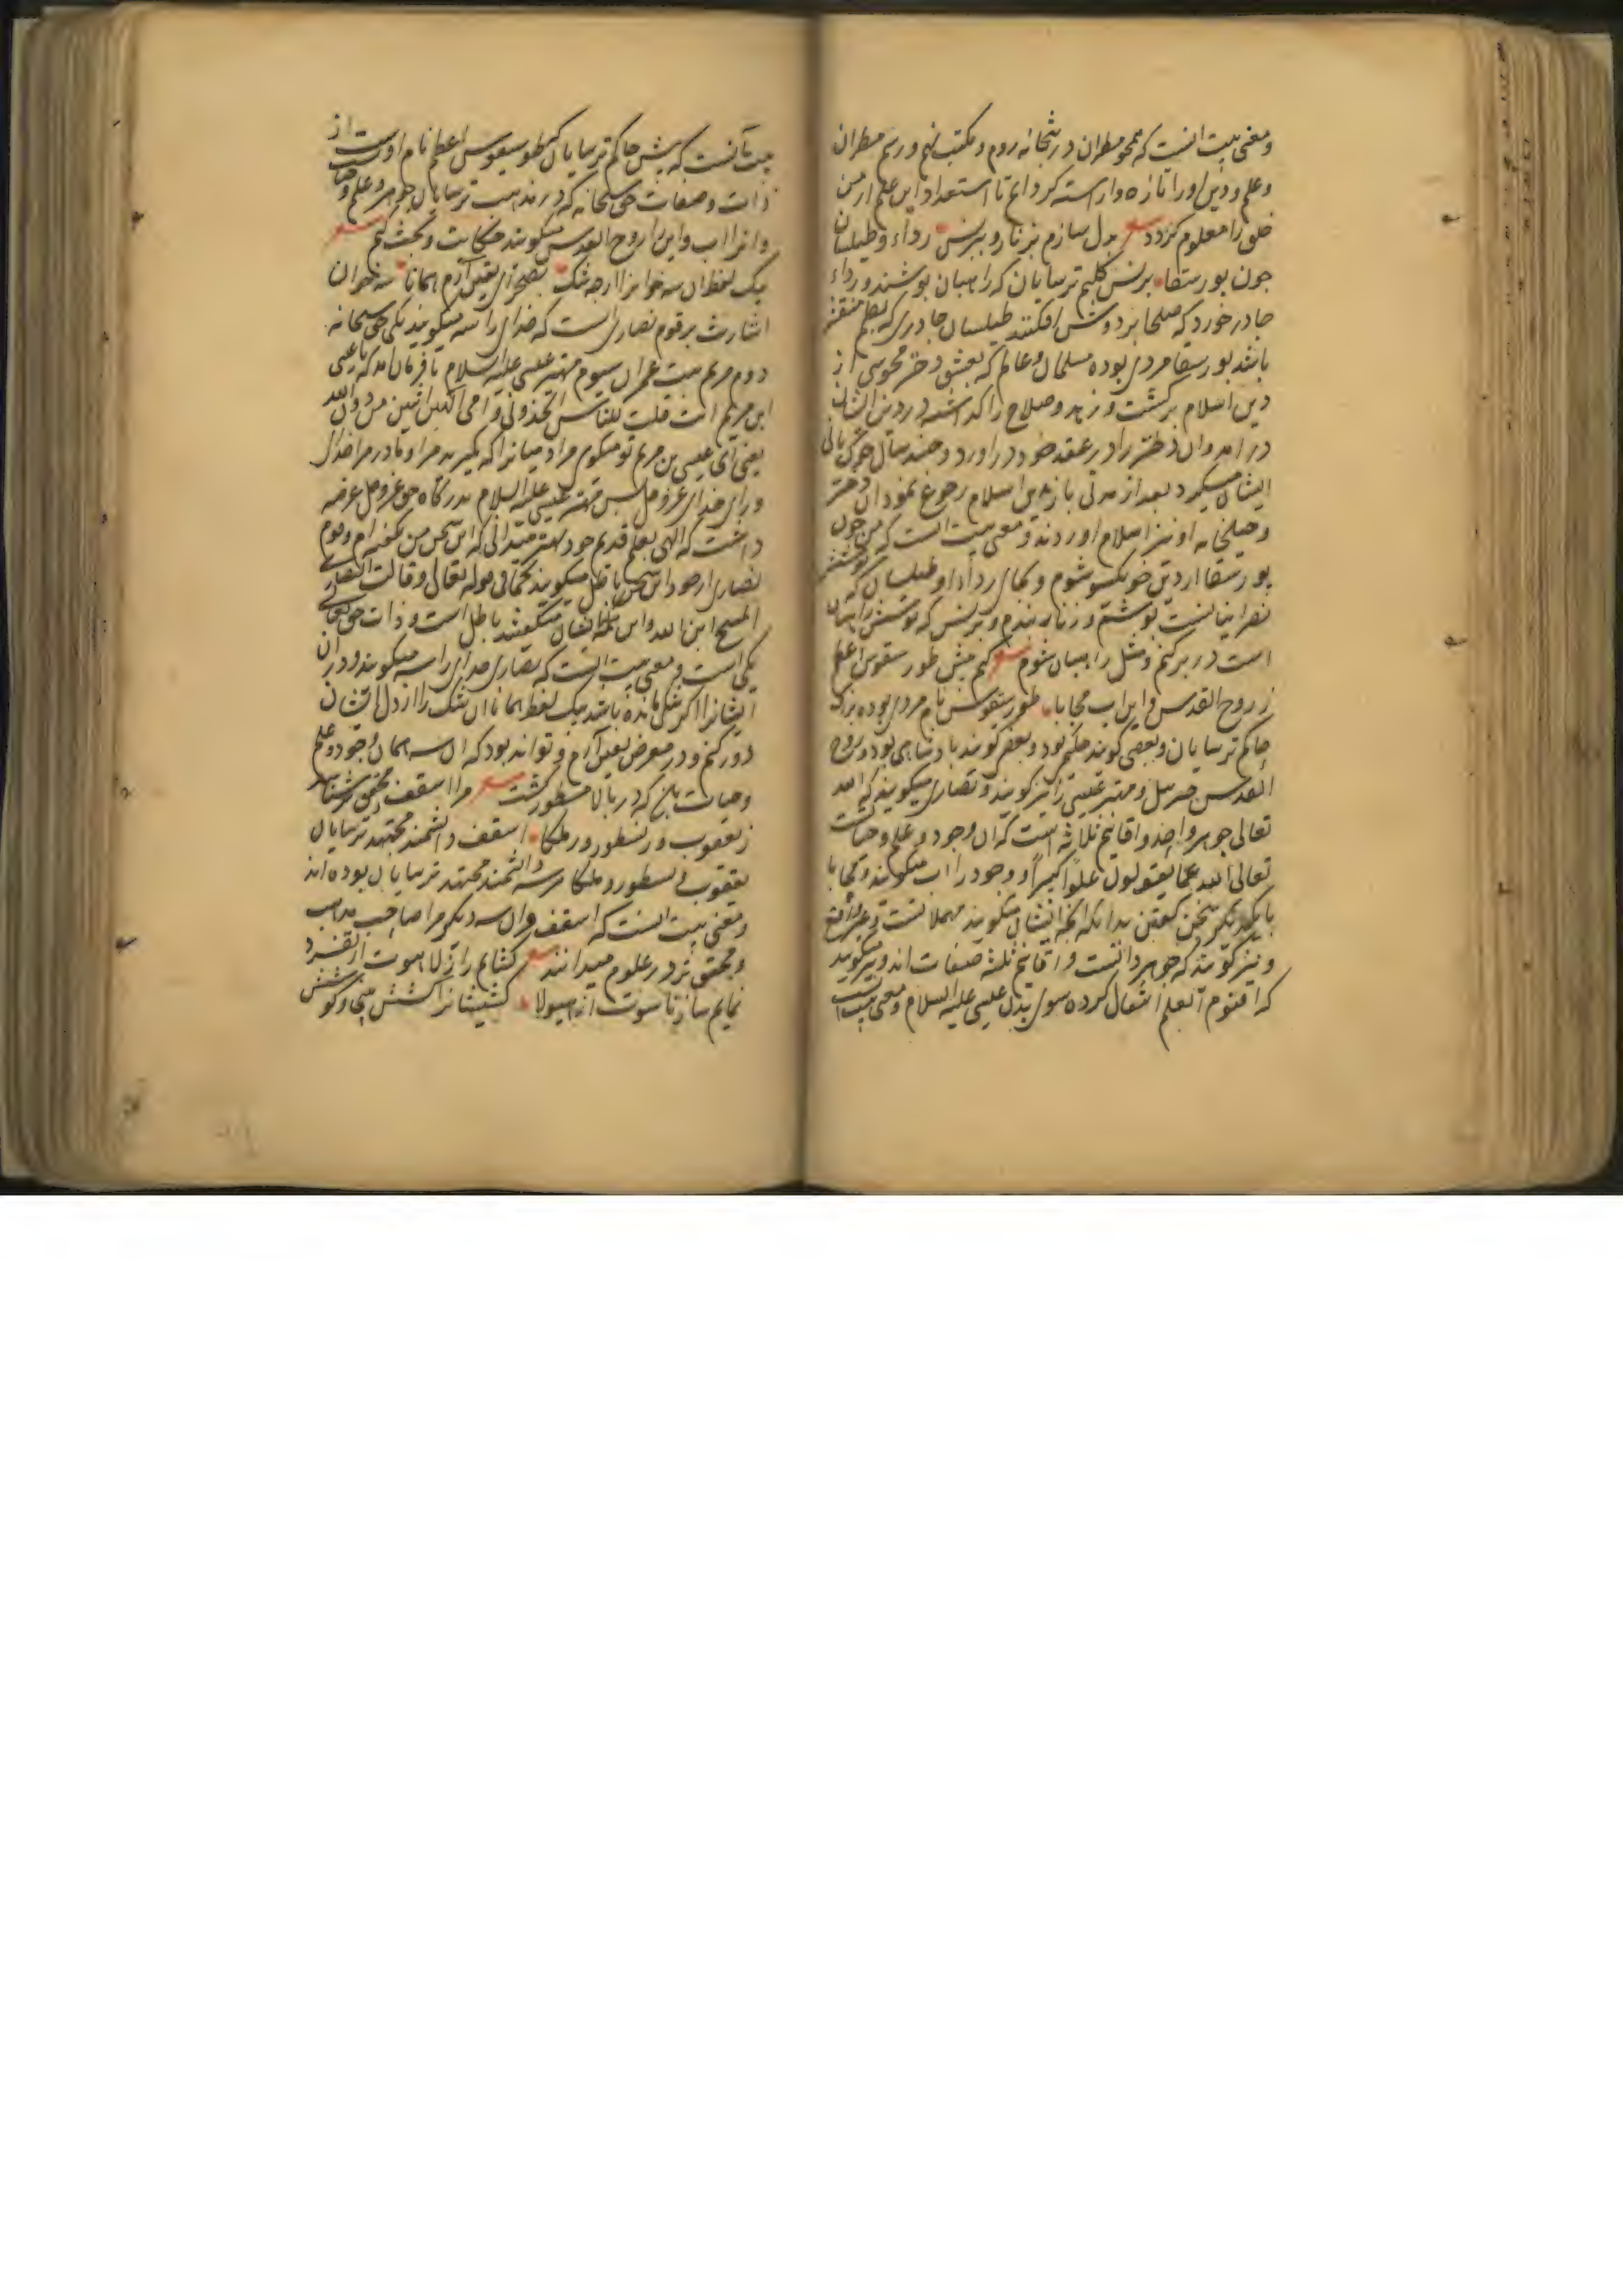 و معنی بیت انست که همچو مطران در بتخانه روم و مکتب نهم و رسم مطران
و علم و دین او را تازه و اراسته کردانم تا استعداد این علم از من
خلق را معلوم کردد بدل سازم بزنار و ببرنس رداء و طیلسان
جون بور سقا برنس کلیم ترسایان که راهبان بوشند و رداء
جادر خورد که صلحا بر دوش افکنند طیلسان جادری که
باشد بور سقا مردی بوده مسلمان و عالم که بعشق دختر مجوسی از
دین اسلام برکشت و زهد و صلاح را کذاشته در دین ایشان
درامد و ان دختر را در عقد خود دراورد و جند سال خوک بانی
ایشان میکرد بعد از مدتی باز بدین اسلام رجوع نمود ان دختر
و خیلخانه او نیز اسلام اوردند و معنی بیت انست که من جون
بور سقا از دین خود یکسو شوم و بجای رداء و طیلسان که بوشش
نصرانیانست بوشم و زنار بندم و برنس که بوشش راهبان
است در بر کنم و مثل راهبان شوم کنم بیش طور سیقوس اعظم
ز روح القدس و ابن و اب مجابا طور سیقوس نام مردی بوده بزرک
حاکم ترسایان و بعضی کویند حکیم بود و بعضی کویند بادشاهی بود و روح
القدس جبرئیل و مهتر عیسی را نیز کویند و نصاری میکویند که الله
تعالی جوهر واحد و اقانیم ثلاثه است که ان وجود و علم و حیات
تعالی الله عما یقولون علوا کبیرا و وجود را اب میکویند و مجابا
با یکدیکر سخن کفتن بدانکه انجه ایشان میکویند مهملانست و غیر واقع
و نیز کویند که جوهر ذاتست و اقانیم ثلثه صفات اند و میکویند
که اقنوم العلم انتقال کرده سوی بدن عیسی علیه السلام و معنی بیت
بیت آنست که بیش حاکم ترسایان که طور سیقوس اعظم نام اوست از
ذات و صفات حق سبحانه که در مذهب ترسایان جوهر و علم و حیات
و انرا اب و ابن و روح القدس میکویند حکایت و بحث کنم
بیک لفظ ان سه خوان را از جه شک بصحرای یقین آرم همانا سه خوان
اشارت بر قوم نصاری است که خدای را سه میکویند یکی حق سبحانه
دوم مریم بنت عمران سیوم مهتر عیسی علیه السلام تا فرمان امد که یا عیسی
ابن مریم ءانت قلت للناس اتخذونی و امی الهین اثنین من دون الله
یعنی ای عیسی بن مریم تو میکوی مردمانرا که بکیرید مرا و مادر مرا خدای
ورای خدای عز و جل بس مهتر عیسی علیه السلام بدرکاه حق عز و جل عرضه
داشت که الهی بعلم قدیم خود بهتر میدانی که این سخن من نکفته ام و قوم
نصاری از خود این سخن باطل میکویند کما فی قوله تعالی و قالت النصاری
المسیح ابن الله و این کلمه ایشان میکفتند باطل است و ذات حق تعالی
یکی است و معنی بیت انست که نصاری خدای را سه میکویند و در ان
ایشانرا اکر شکی مانده باشد بیک لفظ همانا ان شک را از دل ایشان
دور کنم و در معرض یقین آرم و تواند بود که ان سه همان وجود و علم
و حیات باشد که در بالا مسطور کشت مرا اسقف محقق تر شناسد
ز یعقوب و ز نسطور و ز ملکا اسقف دانشمند مجتهد ترسایان
یعقوب و نسطور و ملکا هر سه دانشمند مجتهد ترسایان بوده اند
و معنی بیت انست که اسقف و ان سه دیکر مرا صاحب مذهب
و محقق تر در علوم میدانند کشایم راز لاهوت از تفرد
نمایم ساز ناسوت از هیولا کشیشانرا کشش بینی و کوشش